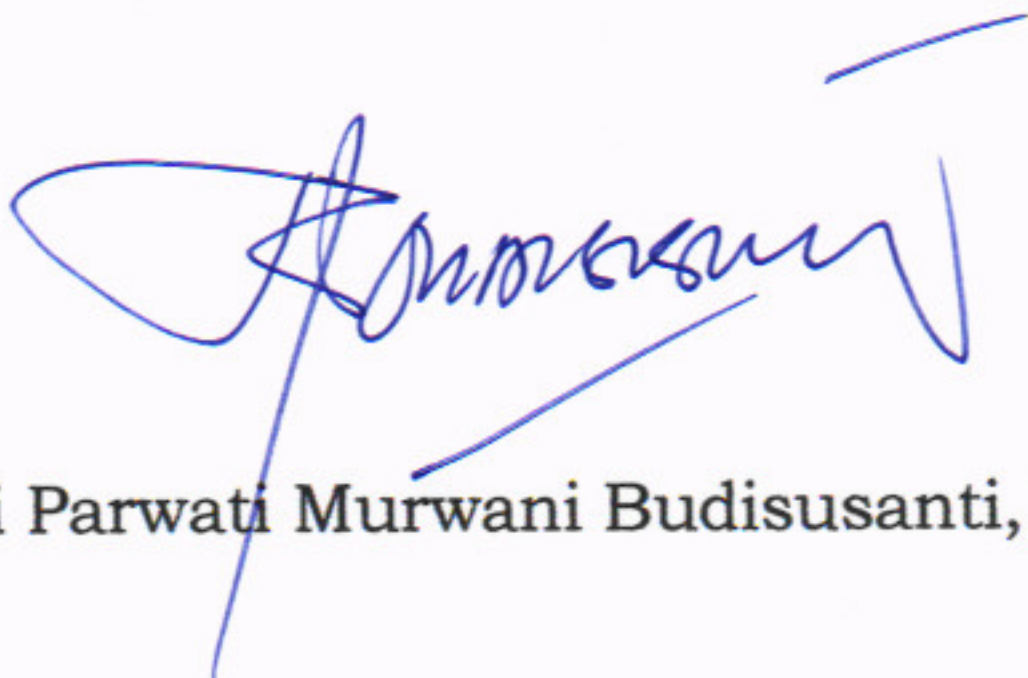 i Parwati Murwani Budisusanti,